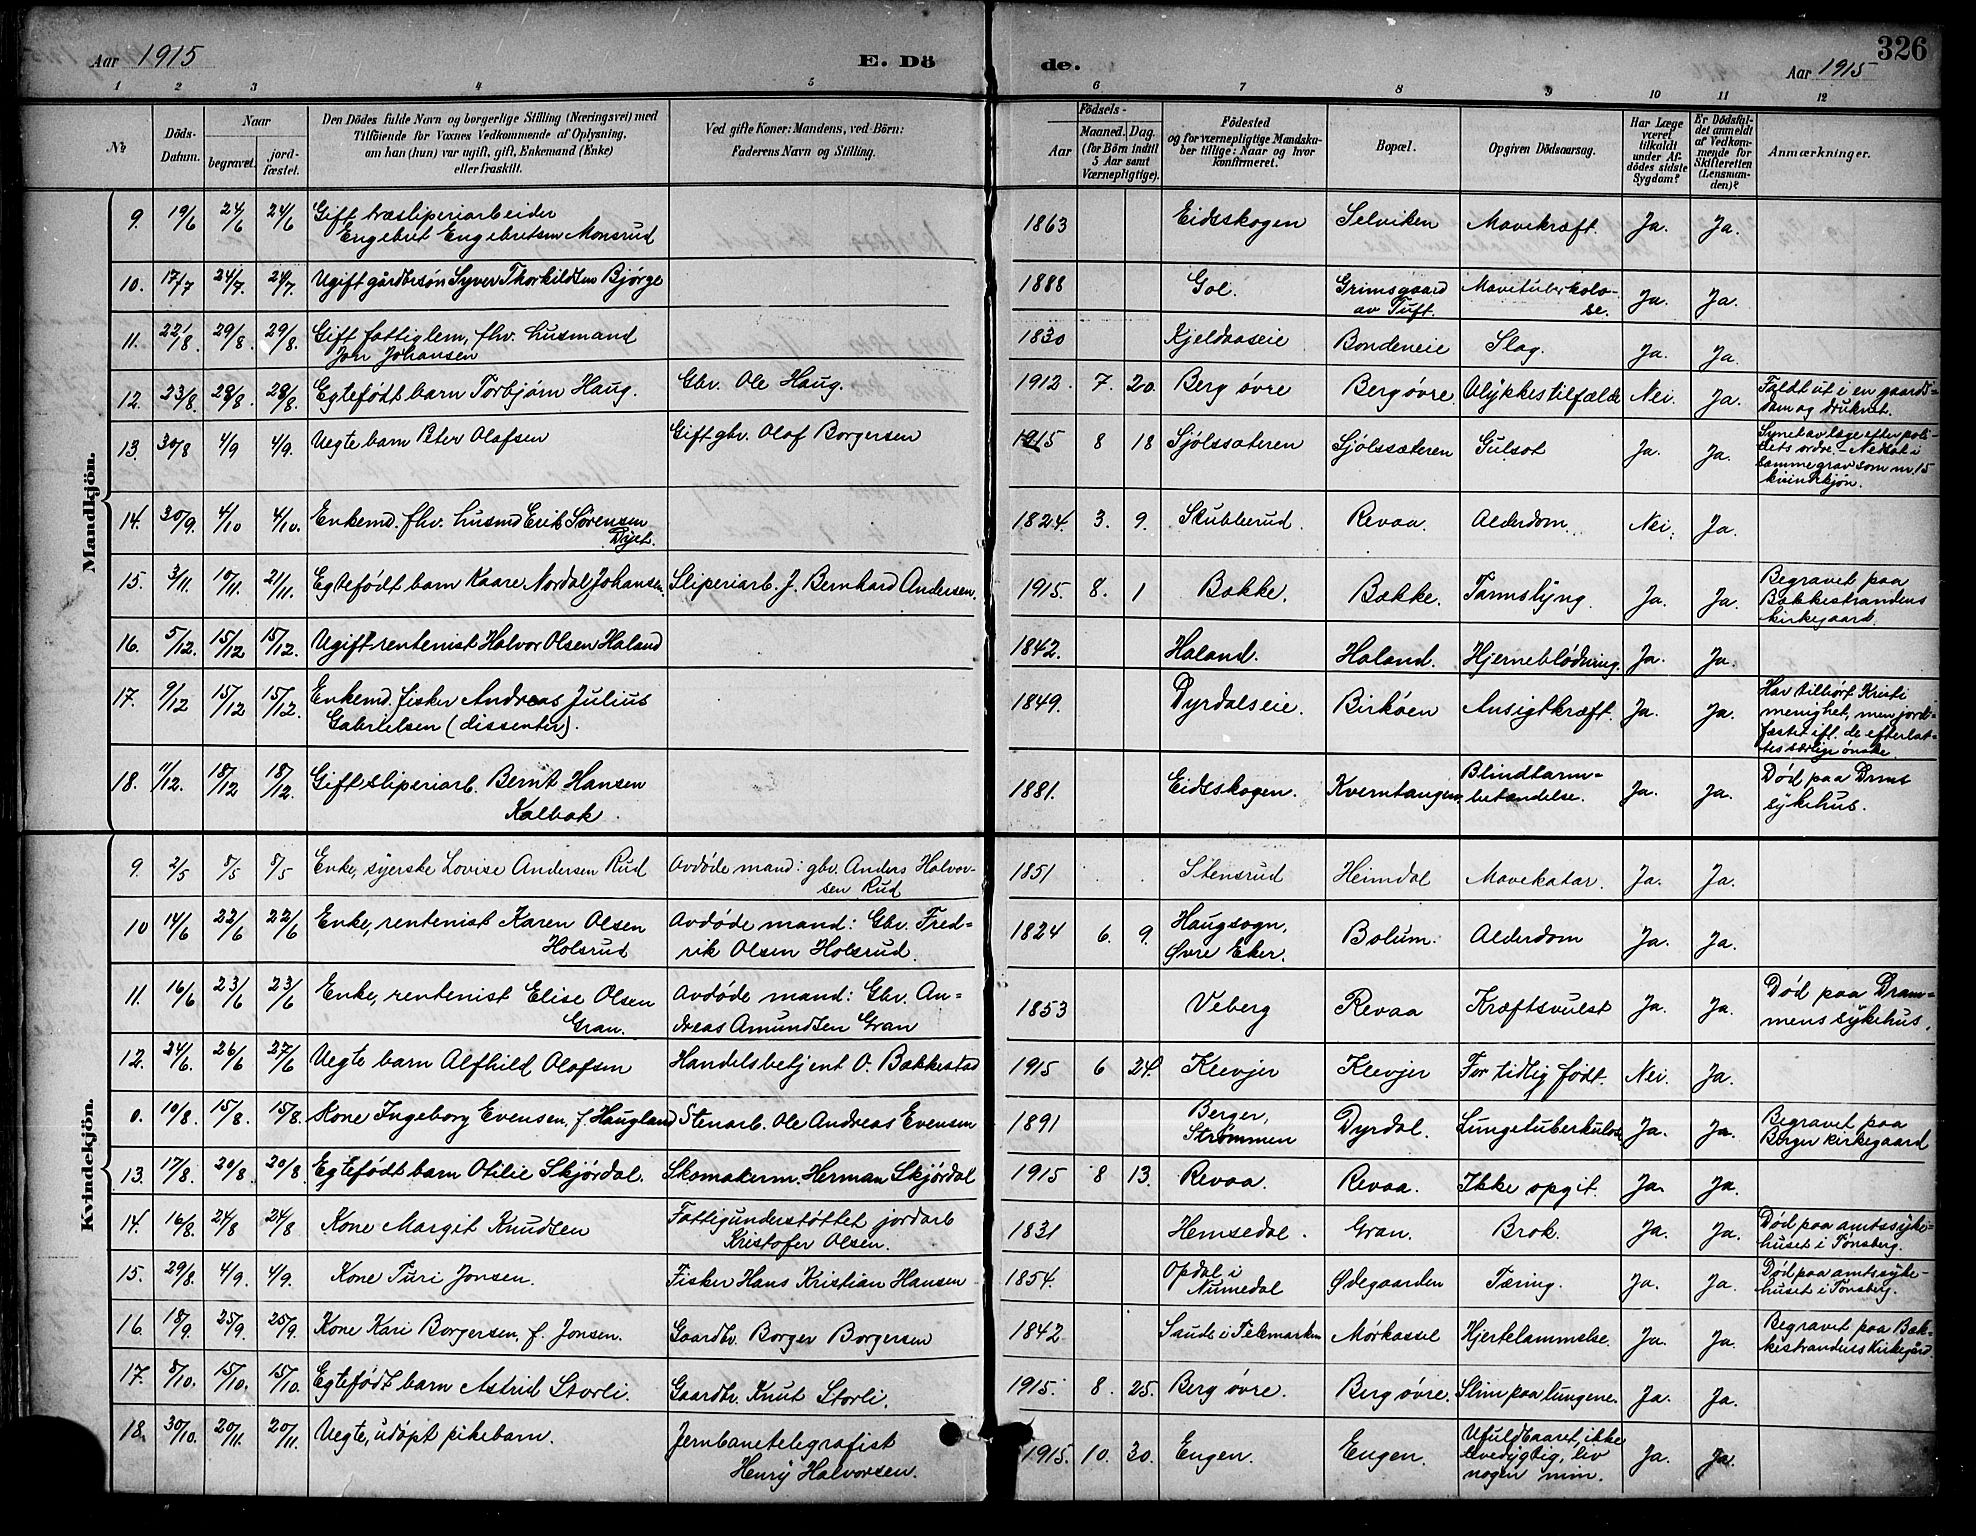 Aar 1915
E. Dö
de.
326
Aar 1915
1 2 3 4 5 6 7 8 9 10 11 12
No
Döds-
Datum.
Naar
begravet.
jord-
fæstet.
Den Dödes fulde Navn og borgerlige Stilling (Næringsvei) med
Tilföiende for Voxnes Vedkommende af Oplysning,
om han (hun) var ugift, gift, Enkemand (Enke)
eller fraskilt.
Ved gifte Koner: Mandens, ved Börn:
Faderens Navn og Stilling.
Födsels-
Aar
Maaned.
Dag.
(for Börn indtil
5 Aar samt
Værnepligtige).
Födested
og for værnepligtige Mandska-
ber tillige: Naar og hvor
konfirmeret.
Bopæl.
Opgiven Dödsaarsag.
Har Læge
været
tilkaldt
under Af-
dödes sidste
Sygdom?
Er Dödsfal-
det anmeldt
af Vedkom-
mende for
Skifteretten
(Lensman-
den)?
Anmærkninger.
Mandkjön.
9. 19/6 24/6 24/6 Gift træsliperiarbeider
Engebret Engebretsen Monsrud
1863 Eidsskogen Selviken Mavekræft. Ja. Ja.
10. 17/7 24/7. 24/7. Ugift gårdbrsøn Syver Thorkildsen Bjørge
1888 Gol. Grimsgaard
av Tuft. Mavetuberkolo-
se. Ja. Ja.
11. 22/8 29/8. 29/8. Gift fattiglem, fhv. husmand
Jon Johansen
1830 Kjeldaaseie Bondeneie Slag. Ja. Ja.
12. 23/8. 28/8. 28/8. Egtefødt barn Torbjørn Haug. Gbr. Ole Haug.
1912. 7. 20. Berg øvre Berg øvre. Ulykkestilfælde Nei. Ja. Faldt ut i en gaards-
dam og druknet.
13. 30/8 4/9 4/9. Uegte barn Peter Olafsen Gift gbr. Olaf Borgersen
1915 8 18 Sjølssæteren Sjølssæteren Gulsot Ja. Ja. Synet av læge efter poli-
tiets ordre. - Nedsat i
samme grav som nr. 15
kvindekjøn.
14. 30/9. 4/10 4/10. Enkemd. fhv. husmd Erik Sørensen
Dyet.
1824. 3. 9. Skubberud. Revaa. Alderdom. Nei. Ja.
15. 3/11. 10/11. 21/11. Egtefødt barn Kaare Nordal Johansen. Sliperiarb. J. Bernhard Andersen.
1915. 8. 1 Bakke. Bakke. Tarmslyng. Ja. Ja. Begravet paa
Bakkestrandens
kirkegaard.
16. 5/12. 15/12 15/12. Ugift rentenist Halvor Olsen Haland
1842. Haland. Haland. Hjerneblødning. Ja. Ja.
17. 9/12 15/12 15/12. Enkemd. fisker Andreas Julius
Gabrielsen (dissenter).
1849. Dyrdalseie. Birkøen Ansigtkræft. Ja. Ja. Har tilhørt Kristi
menighet, men jord-
fæstet ifl. de efterlat-
tes særlige ønske
18. 11/12. 18/12 18/12. Gift sliperiarb. Bernt Hansen
Kalbak.
1881. Eidsskogen. Kverntangen. Blindtarm-
betændelse. Ja. Ja. Død paa Drms
sykehus.
Kvindekjön.
9. 2/5 8/5 8/5 Enke, syerske Lovise Andersen Rud Avdøde mand: gbr. Anders Halvor-
sen Rud
1851 Stensrud Heimdal Mavekatar. Ja. Ja.
10 14/6 22/6 22/6 Enke, rentenist Karen Olsen
Holsrud Avdøde mand: Gbr. Fred-
rik Olsen Holsrud.
1824 6. 9. Haugsogn,
Øvre Eker. Bolum. Alderdom Ja. Ja.
11. 16/6 23/6 23/6 Enke, rentenist Elise Olsen
Gran. Avdøde mand: Gbr. An-
dreas Amundsen Gran
1853 Veberg Revaa Kræftsvulst Ja. Ja. Død paa Dram-
mens sykehus.
12. 24/6. 26/6 27/6 Uegte barn Alfhild Olafsen Handelsbetjent O. Bakkestad
1915 6 24. Klevjer Klevjer For tidlig født. Nei. Ja.
0. 10/8. 15/8. 15/8. Kone Ingeborg Evensen, f. Haugland Stenarb. Ole Andreas Evensen
1891 Berger,
Strømmen Dyrdal. Lungetuberkulose Ja. Ja. Begravet paa
Berger kirkegaard
13. 17/8. 20/8 20/8 Egtefødt barn Otilie Skjørdal. Skomakerm. Herman Skjørdal
1915 8 13. Revaa. Revaa. Ikke opgit. Ja. Ja.
14. 16/8. 24/8 24/8 Kone Margit Knudsen Fattigunderstøttet jordarb
Kristofer Olsen.
1831 Hemsedal. Gran. Brok. Ja. Ja. Død paa amtssyke-
huset i Tønsberg.
15. 29/8. 4/9. 4/9. Kone Turi Jonsen. Fisker Hans Kristian Hansen
1854. Opdal i
Numedal Ødegaarden Tæring. Ja. Ja Død paa amtssyke-
huset i Tønsberg.
16. 18/9. 25/9. 25/9. Kone Kari Borgersen, f. Jonsen. Gaardbr. Borger Borgersen
1842 Saude i Telemarken Mørkassel Hjertelammelse. Ja. Ja. Begravet paa Bak-
kestrandens Kirkegård.
17. 8/10. 15/10. 15/10. Egtefødt barn Astrid Storli. Gaardbr. Knut Storli.
1915. 8. 25. Berg øvre. Berg øvre. Slim paa lungene. Ja. Ja.
18. 30/10. 20/11. 20/11. Uegte, udøpt pikebarn. Jernbanetelegrafist
Henry Halvorsen.
1915. 10. 30. Engen. Engen. Ufuldbaaret, ikke
levedygtig, lev
nogen min. Ja. Ja.